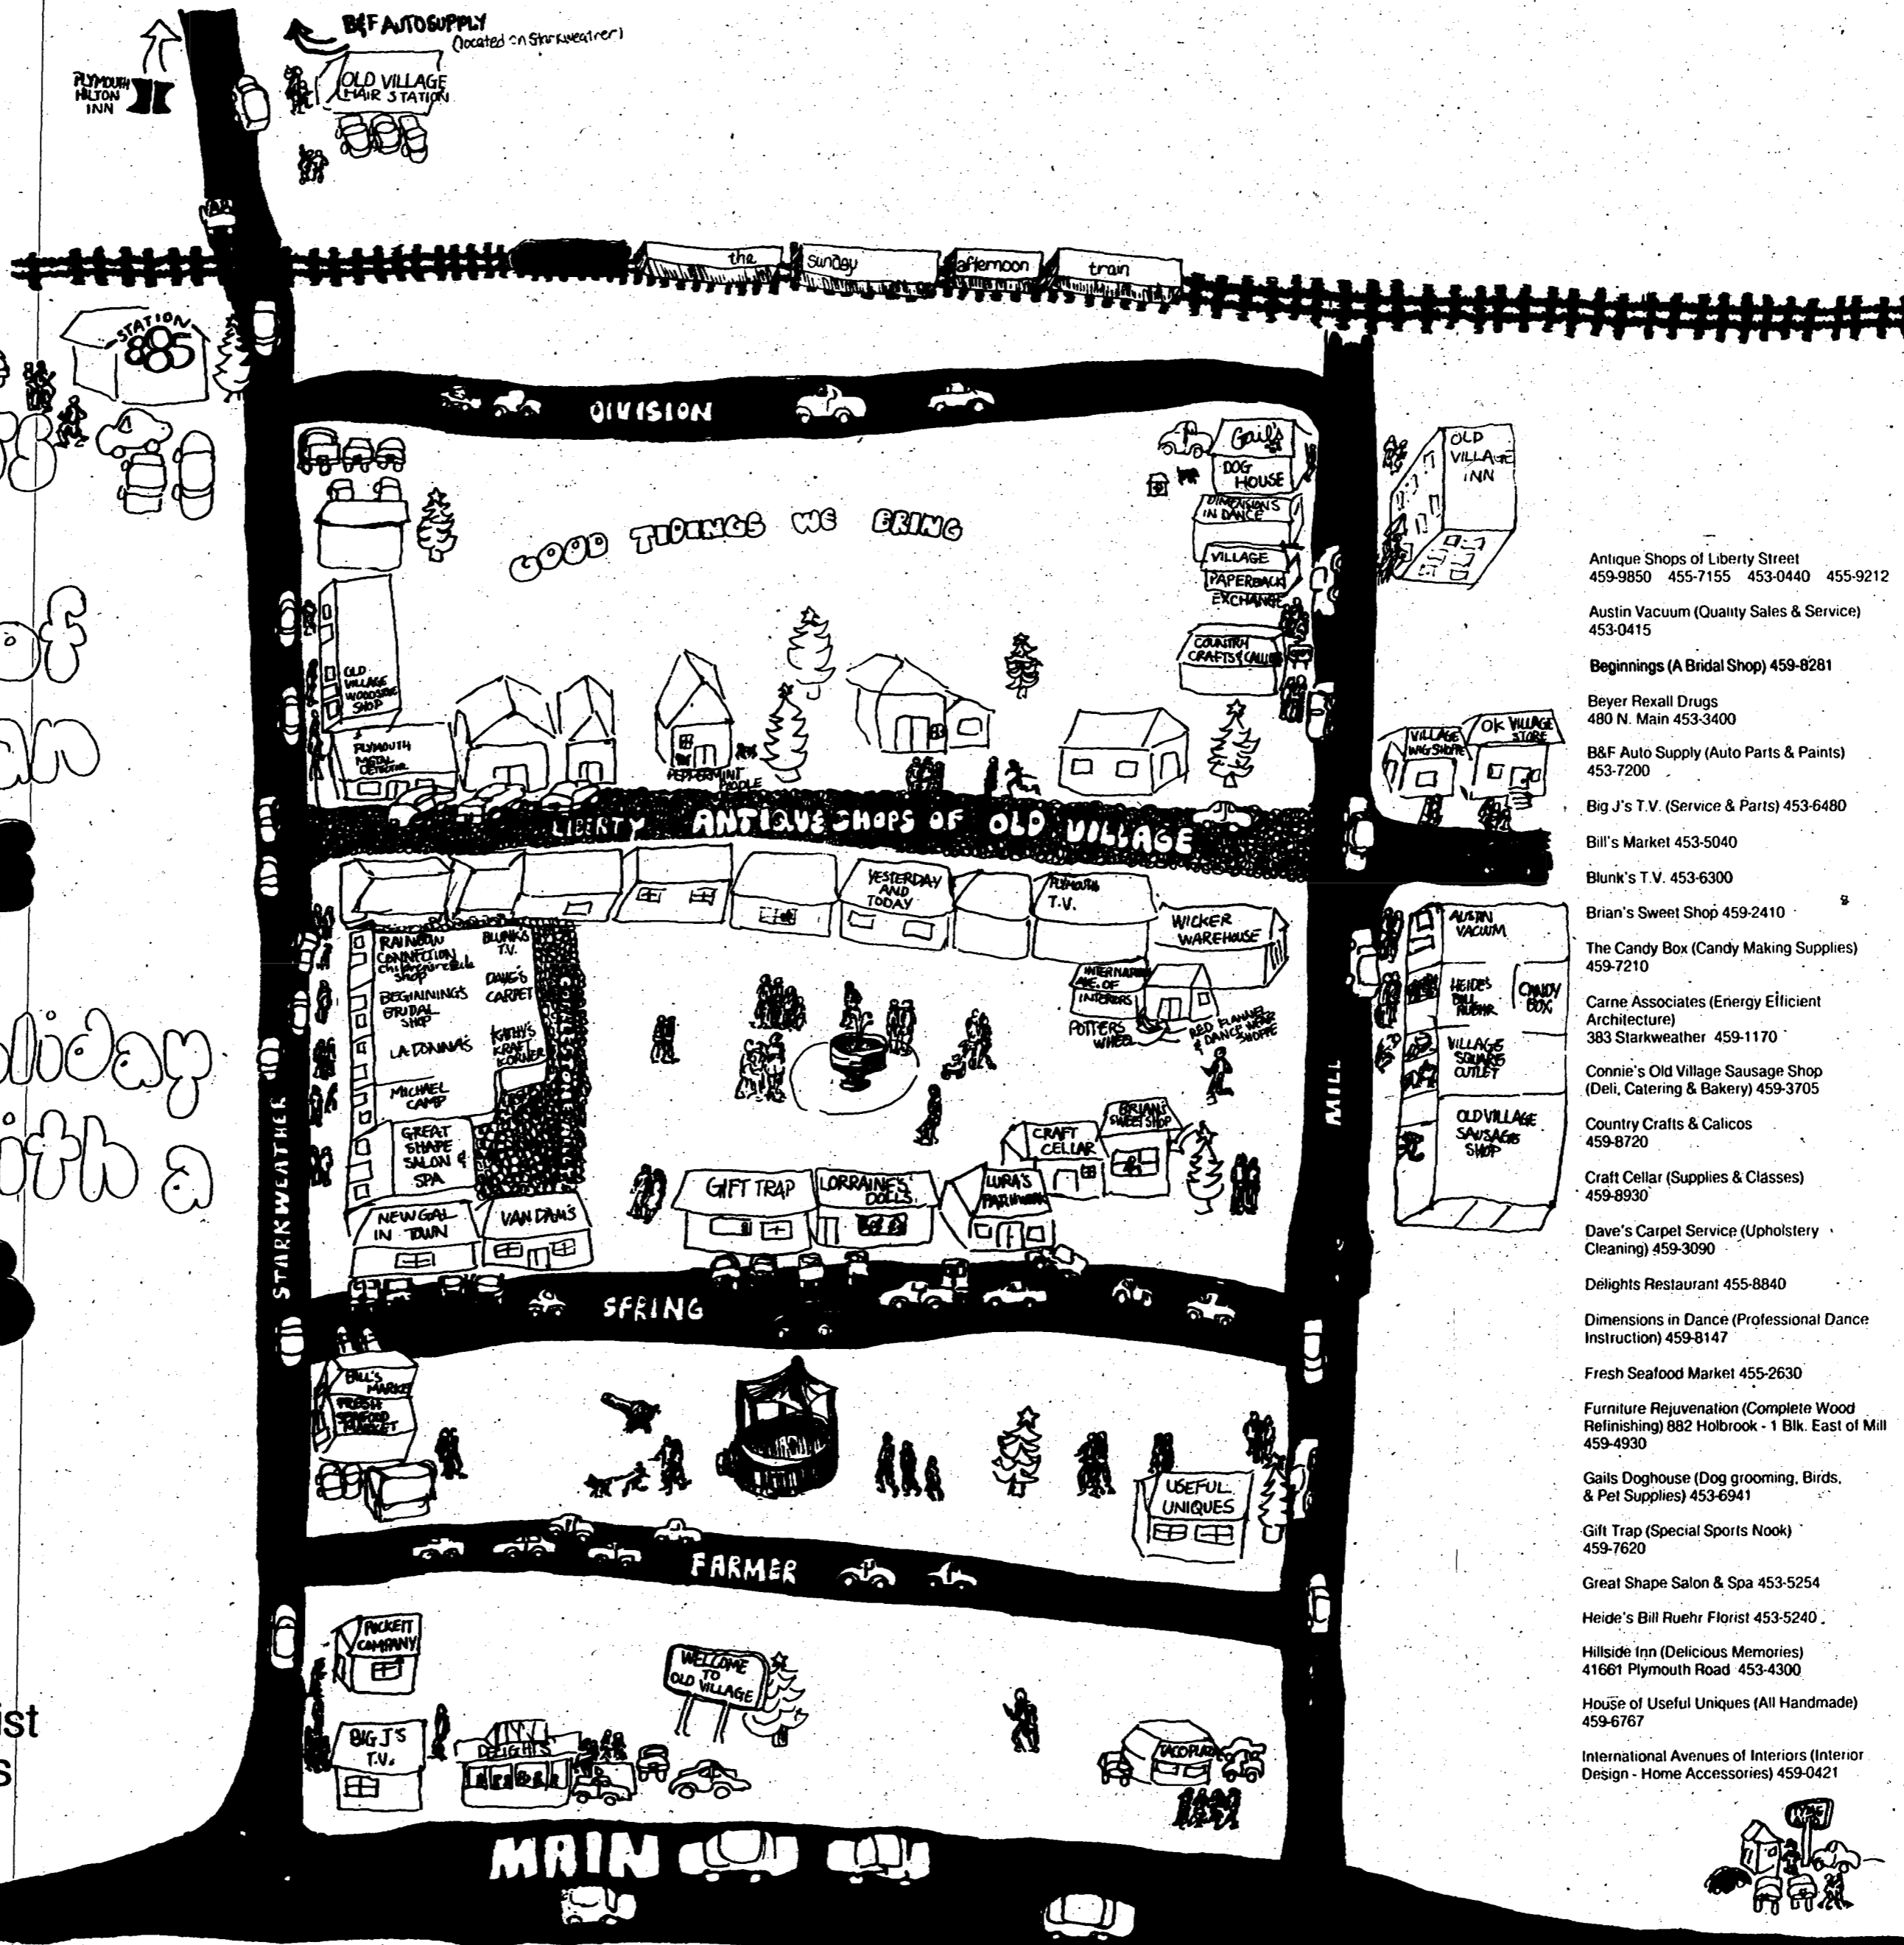 B&F AUTO SUPPLY
(located on Starkweather)
PLYMOUTH
HILTON
INN
OLD VILLAGE
HAIR STATION
the sunday afternoon train
STATION
885
DIVISION
Gail's
DOG
HOUSE
DIMENSIONS
IN DANCE
VILLAGE
PAPERBACK
EXCHANGE
COUNTRY
CRAFTS & CALICO
OLD
VILLAGE
INN
GOOD TIDINGS WE BRING
OLD
VILLAGE
WOODSIDE
SHOP
PLYMOUTH
METAL
DETECTOR
PEPPERMINT
POODLE
VILLAGE
WIG SHOPPE
OK VILLAGE
STORE
LIBERTY ANTIQUE SHOPS OF OLD VILLAGE
YESTERDAY
AND
TODAY
PLYMOUTH
T.V.
WICKER
WAREHOUSE
RAINBOW
CONNECTION
children's resale
shop
BLUNK'S
T.V.
BEGINNINGS
BRIDAL
SHOP
DAVE'S
CARPET
LA DONNA'S
KATHY'S
KRAFT
KORNER
MICHAEL
CAMP
GREAT
SHAPE
SALON &
SPA
INTERNATIONAL
AVE. OF
INTERIORS
POTTERS
WHEEL
RED FLANNEL
& DANCE WEAR
SHOPPE
AUSTIN
VACUUM
HEIDE'S
BILL
RUEHR
CANDY
BOX
VILLAGE
SQUARE
OUTLET
OLD VILLAGE
SAUSAGE
SHOP
STARKWEATHER
MILL
CRAFT
CELLAR
BRIAN'S
SWEET SHOP
NEW GAL
IN TOWN
VAN DAM'S
GIFT TRAP
LORRAINE'S
DOLLS
LURA'S
PATCHWORK
SPRING
BILL'S
MARKET
FRESH
SEAFOOD
MARKET
USEFUL
UNIQUES
FARMER
PUCKETT
COMPANY
WELCOME
TO
OLD VILLAGE
BIG J'S
T.V.
DELIGHTS
TACO PLAZA
MAIN
of
an
oliday
ith a
ist
s
Antique Shops of Liberty Street
459-9850 455-7155 453-0440 455-9212
Austin Vacuum (Quality Sales & Service)
453-0415
Beginnings (A Bridal Shop) 459-8281
Beyer Rexall Drugs
480 N. Main 453-3400
B&F Auto Supply (Auto Parts & Paints)
453-7200
Big J's T.V. (Service & Parts) 453-6480
Bill's Market 453-5040
Blunk's T.V. 453-6300
Brian's Sweet Shop 459-2410
The Candy Box (Candy Making Supplies)
459-7210
Carne Associates (Energy Efficient
Architecture)
383 Starkweather 459-1170
Connie's Old Village Sausage Shop
(Deli, Catering & Bakery) 459-3705
Country Crafts & Calicos
459-8720
Craft Cellar (Supplies & Classes)
459-8930
Dave's Carpet Service (Upholstery
Cleaning) 459-3090
Delights Restaurant 455-8840
Dimensions in Dance (Professional Dance
Instruction) 459-8147
Fresh Seafood Market 455-2630
Furniture Rejuvenation (Complete Wood
Refinishing) 882 Holbrook - 1 Blk. East of Mill
459-4930
Gails Doghouse (Dog grooming, Birds,
& Pet Supplies) 453-6941
Gift Trap (Special Sports Nook)
459-7620
Great Shape Salon & Spa 453-5254
Heide's Bill Ruehr Florist 453-5240
Hillside Inn (Delicious Memories)
41661 Plymouth Road 453-4300
House of Useful Uniques (All Handmade)
459-6767
International Avenues of Interiors (Interior
Design - Home Accessories) 459-0421